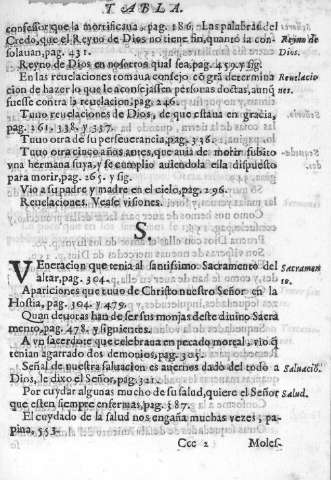 TABLA.
confessor que la mortificaua, pag. 186. Las palabras del
Credo, que el Reyno de Dios no tiene fin, quanto la con-
solauan, pag. 431.
Reyno de
Dios.
Reyno de Dios en nosotros qual sea, pag. 459. y sig.
En las reuelaciones tomaua consejo cõ grã determina
cion de hazer lo que le aconsejassen personas doctas, aunq̃
fuesse contra la reuelacion, pag. 246.
Reuelacio
nes.
Tuuo reuelaciones de Dios, de que estaua en gracia,
pag. 361. 338. y 337.
Tuuo otra de su perseuerancia, pag. 336.
Tuuo otra cinco años antes, que auia de morir subito
vna hermana suya, y se cumplio auiendola ella dispuesto
para morir, pag. 265. y sig.
Vio a su padre y madre en el cielo, pag. 296.
Reuelaciones. Vease visiones.
S.
VEneracion que tenia al santissimo Sacramento del
altar, pag. 304.
Sacramen
to.
Apariciones que tuuo de Christo nuestro Señor en la
Hostia, pag. 304. y 479.
Quan deuotas han de ser sus monjas deste diuino Sacra
mento, pag. 478. y siguientes.
A vn sacerdote que celebraua en pecado mortal, vio q̃
tenian agarrado dos demonios, pag. 305.
Señal de nuestra saluacion es auernos dado del todo a
Dios, le dixo el Señor, pag. 321.
Saluació.
Por cuydar algunas mucho de su salud, quiere el Señor
que esten siempre enfermas, pag. 387.
Salud.
El cuydado de la salud nos engaña muchas vezes, pa-
pina, 553.
Ccc 2
Moles-